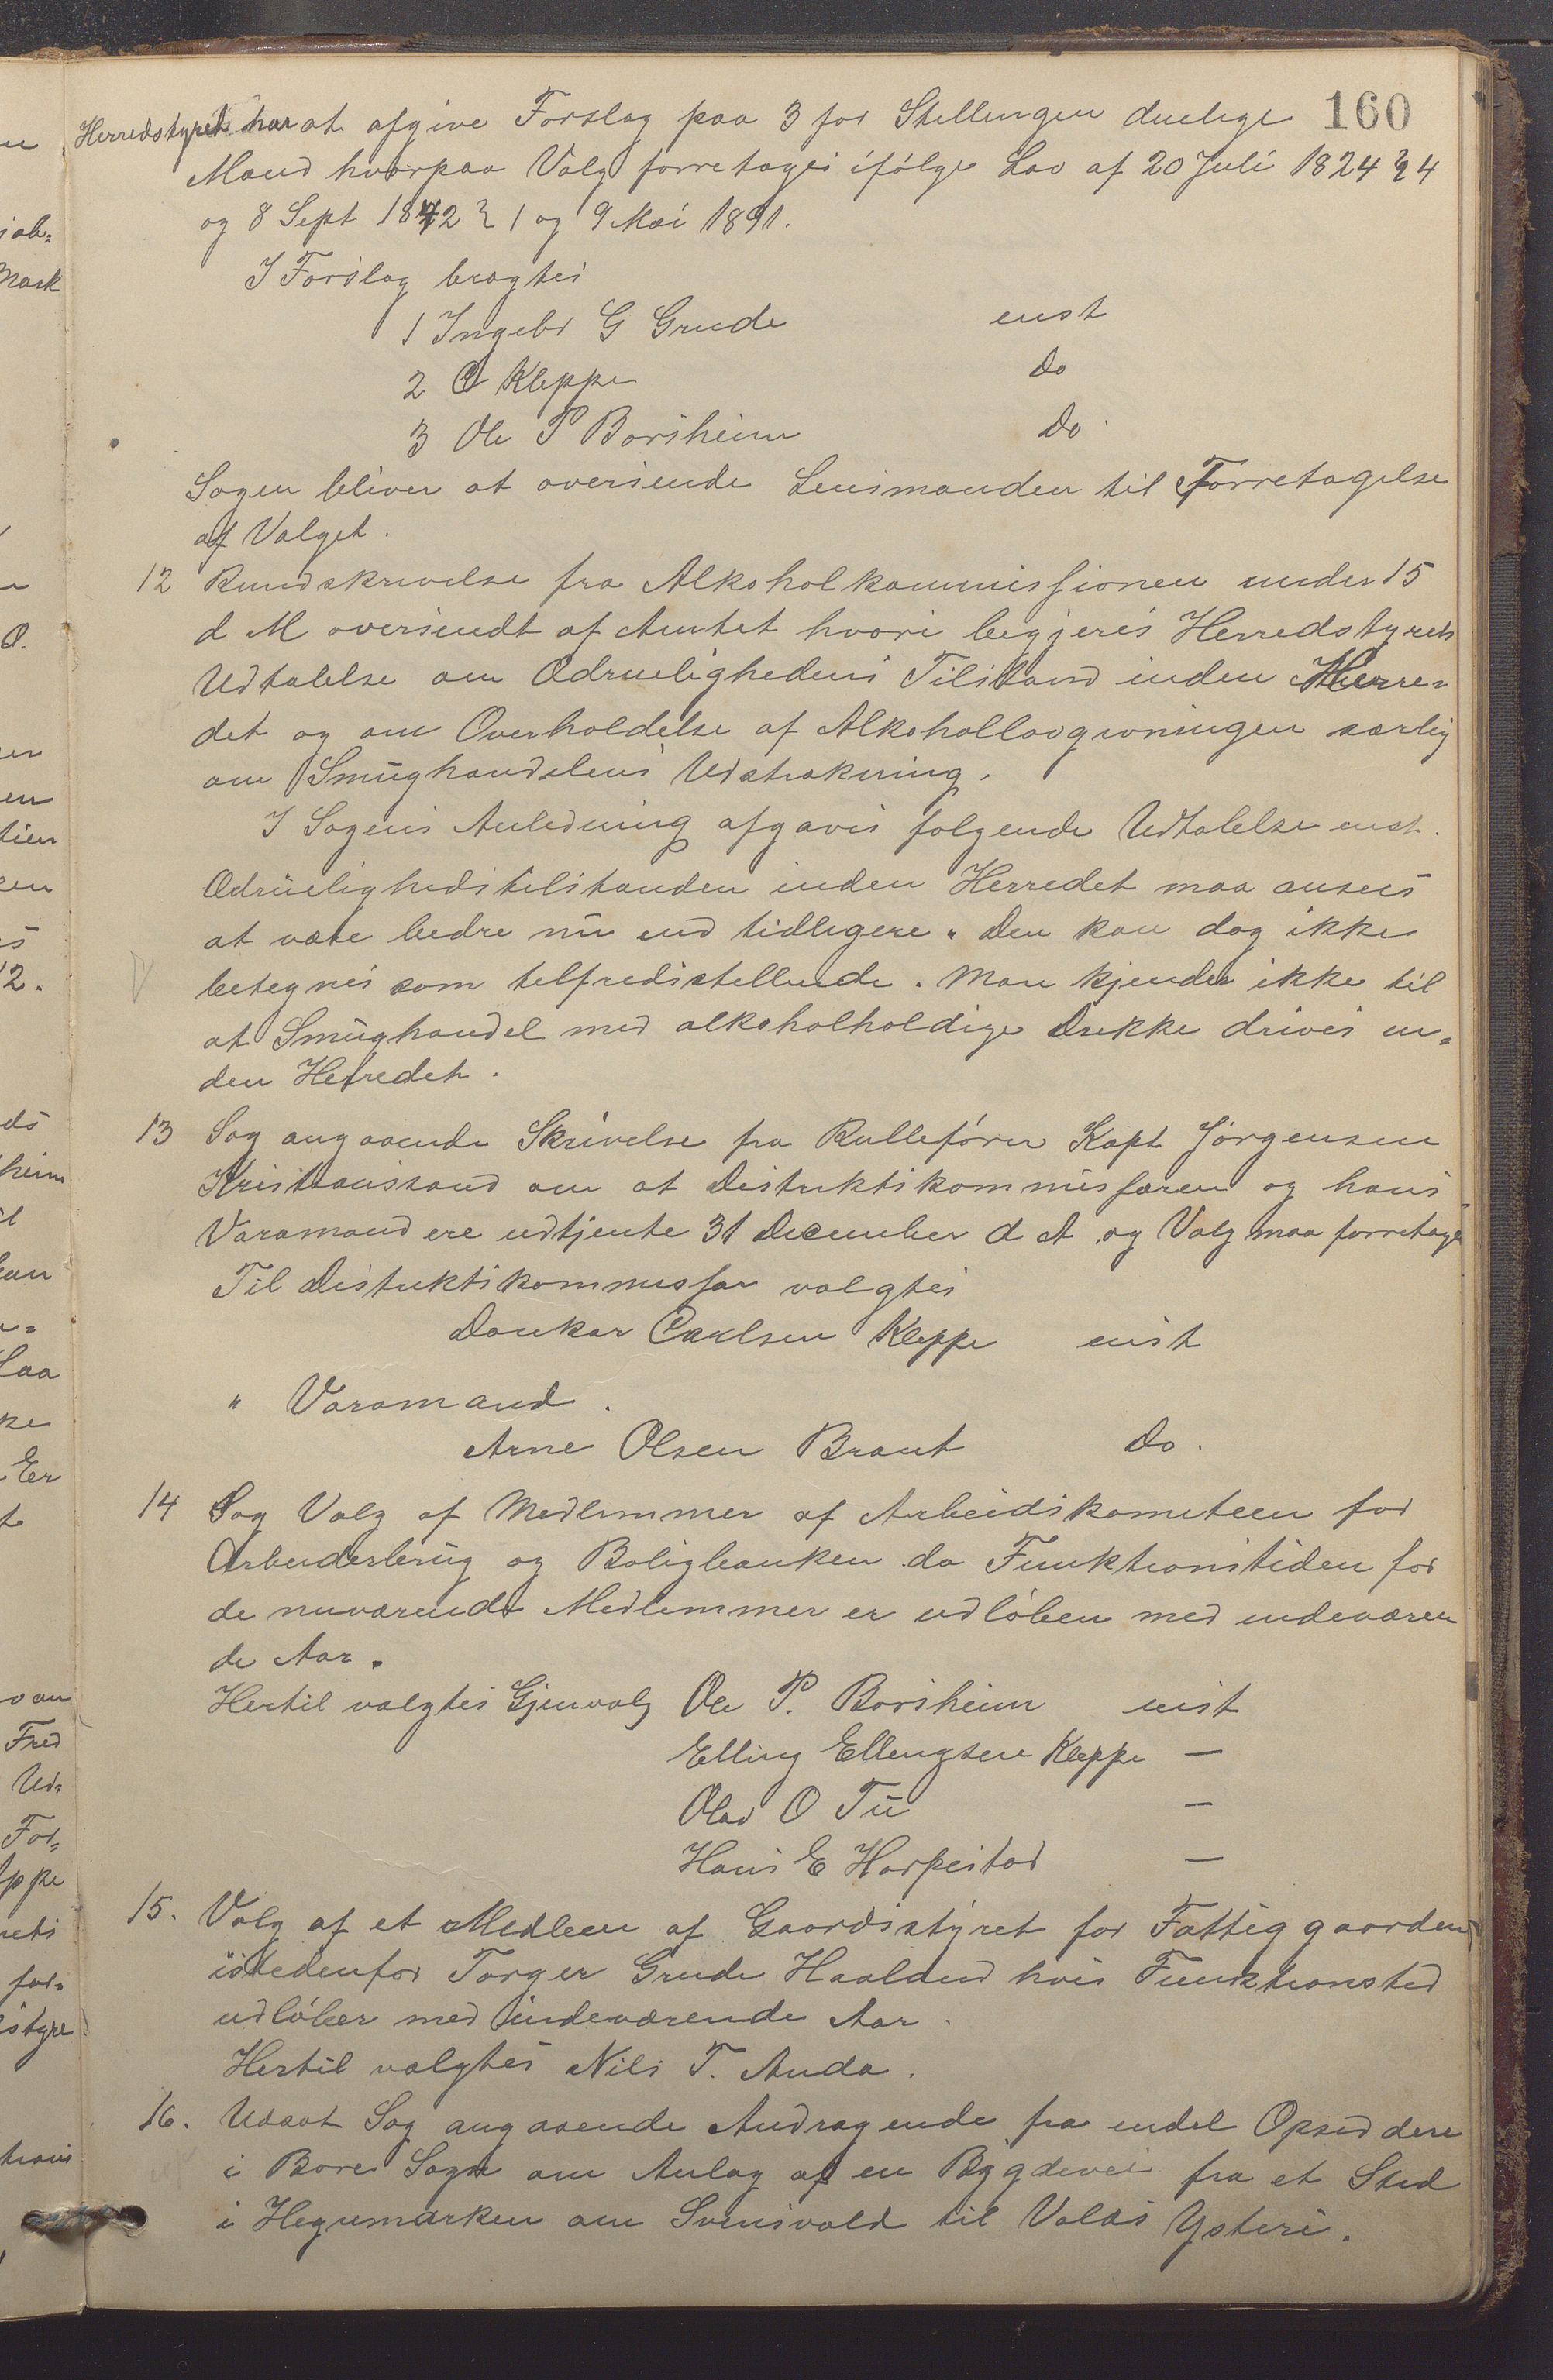 160
Herredstyret har at afgive Forslag paa 3 for Stillingen duelige
Mænd hvorpaa Valg forretages ifølge Lov af 20 Juli 1824 § 4
og 8 Sept 1842 § 1 og 9 Mai 1891.
I Forslag bragtes
1 Ingebr G Grude enst
2 O Kleppe Do
3 Ole P Borsheim Do.
Sagen bliver at oversende Lensmanden til Forretagelse
af Valget.
12 Rundskrivelse fra Alkoholkommissionen under 15
d M oversendt af Amtet hvori begjeres Herredstyrets
Udtalelse om Ædruelighedens Tilstand inden Herre=
det og om Overholdelse af Alkohollovgivningen særlig
om Smughandelens Udstrækning.
I Sagens Anledning afgaves følgende Udtalelse enst.
Ædruelighedstilstanden inden Herredet maa ansees
at være bedre nu end tidligere. Den kan dog ikke
betegnes som tilfredsstillende. Man kjender ikke til
at Smughandel med alkoholholdige Drikke drives in=
den Herredet.
13 Sag angaaende Skrivelse fra Rullefører Kapt Jørgensen
Kristianssand om at Distriktskommissæren og hans
Varamand ere udtjente 31 December d A og Valg maa forretages
Til Distriktskommissær valgtes
Dankar Carlsen Kleppe enst
" Varamand.
Arne Olsen Braut Do.
14 Sag Valg af Medlemmer af Arbeidskomiteen for
Arbeiderbrug og Boligbanken da Funktionstiden for
de nuværende Medlemmer er udløben med indeværen
de Aar.
Hertil valgtes Gjenvalg Ole P. Borsheim enst
Elling Ellingsen Kleppe —
Olav O Tu —
Hans E Harpestad —
15. Valg af et Medlem af Gaardsstyret for Fattiggaarden
istedenfor Torger Grude Haaland hvis Funktionstid
udløber med indeværende Aar.
Hertil valgtes Nils T. Anda.
16. Udsat Sag angaaende Andragende fra endel Opsiddere
i Bore Sogn om Anlæg af en Bygdevei fra et Sted
i Hegremarken om Svensvold til Volds Ysteri.